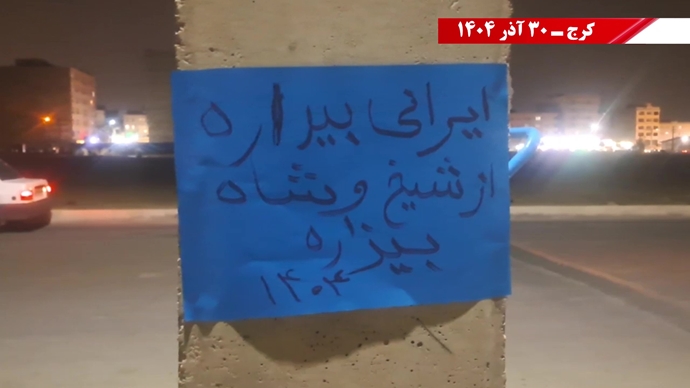 کرج ـ ۳۰ آذر ۱۴۰۴
ایرانی بیداره
از شیخ و شاه
بیزاره
۱۴۰۴